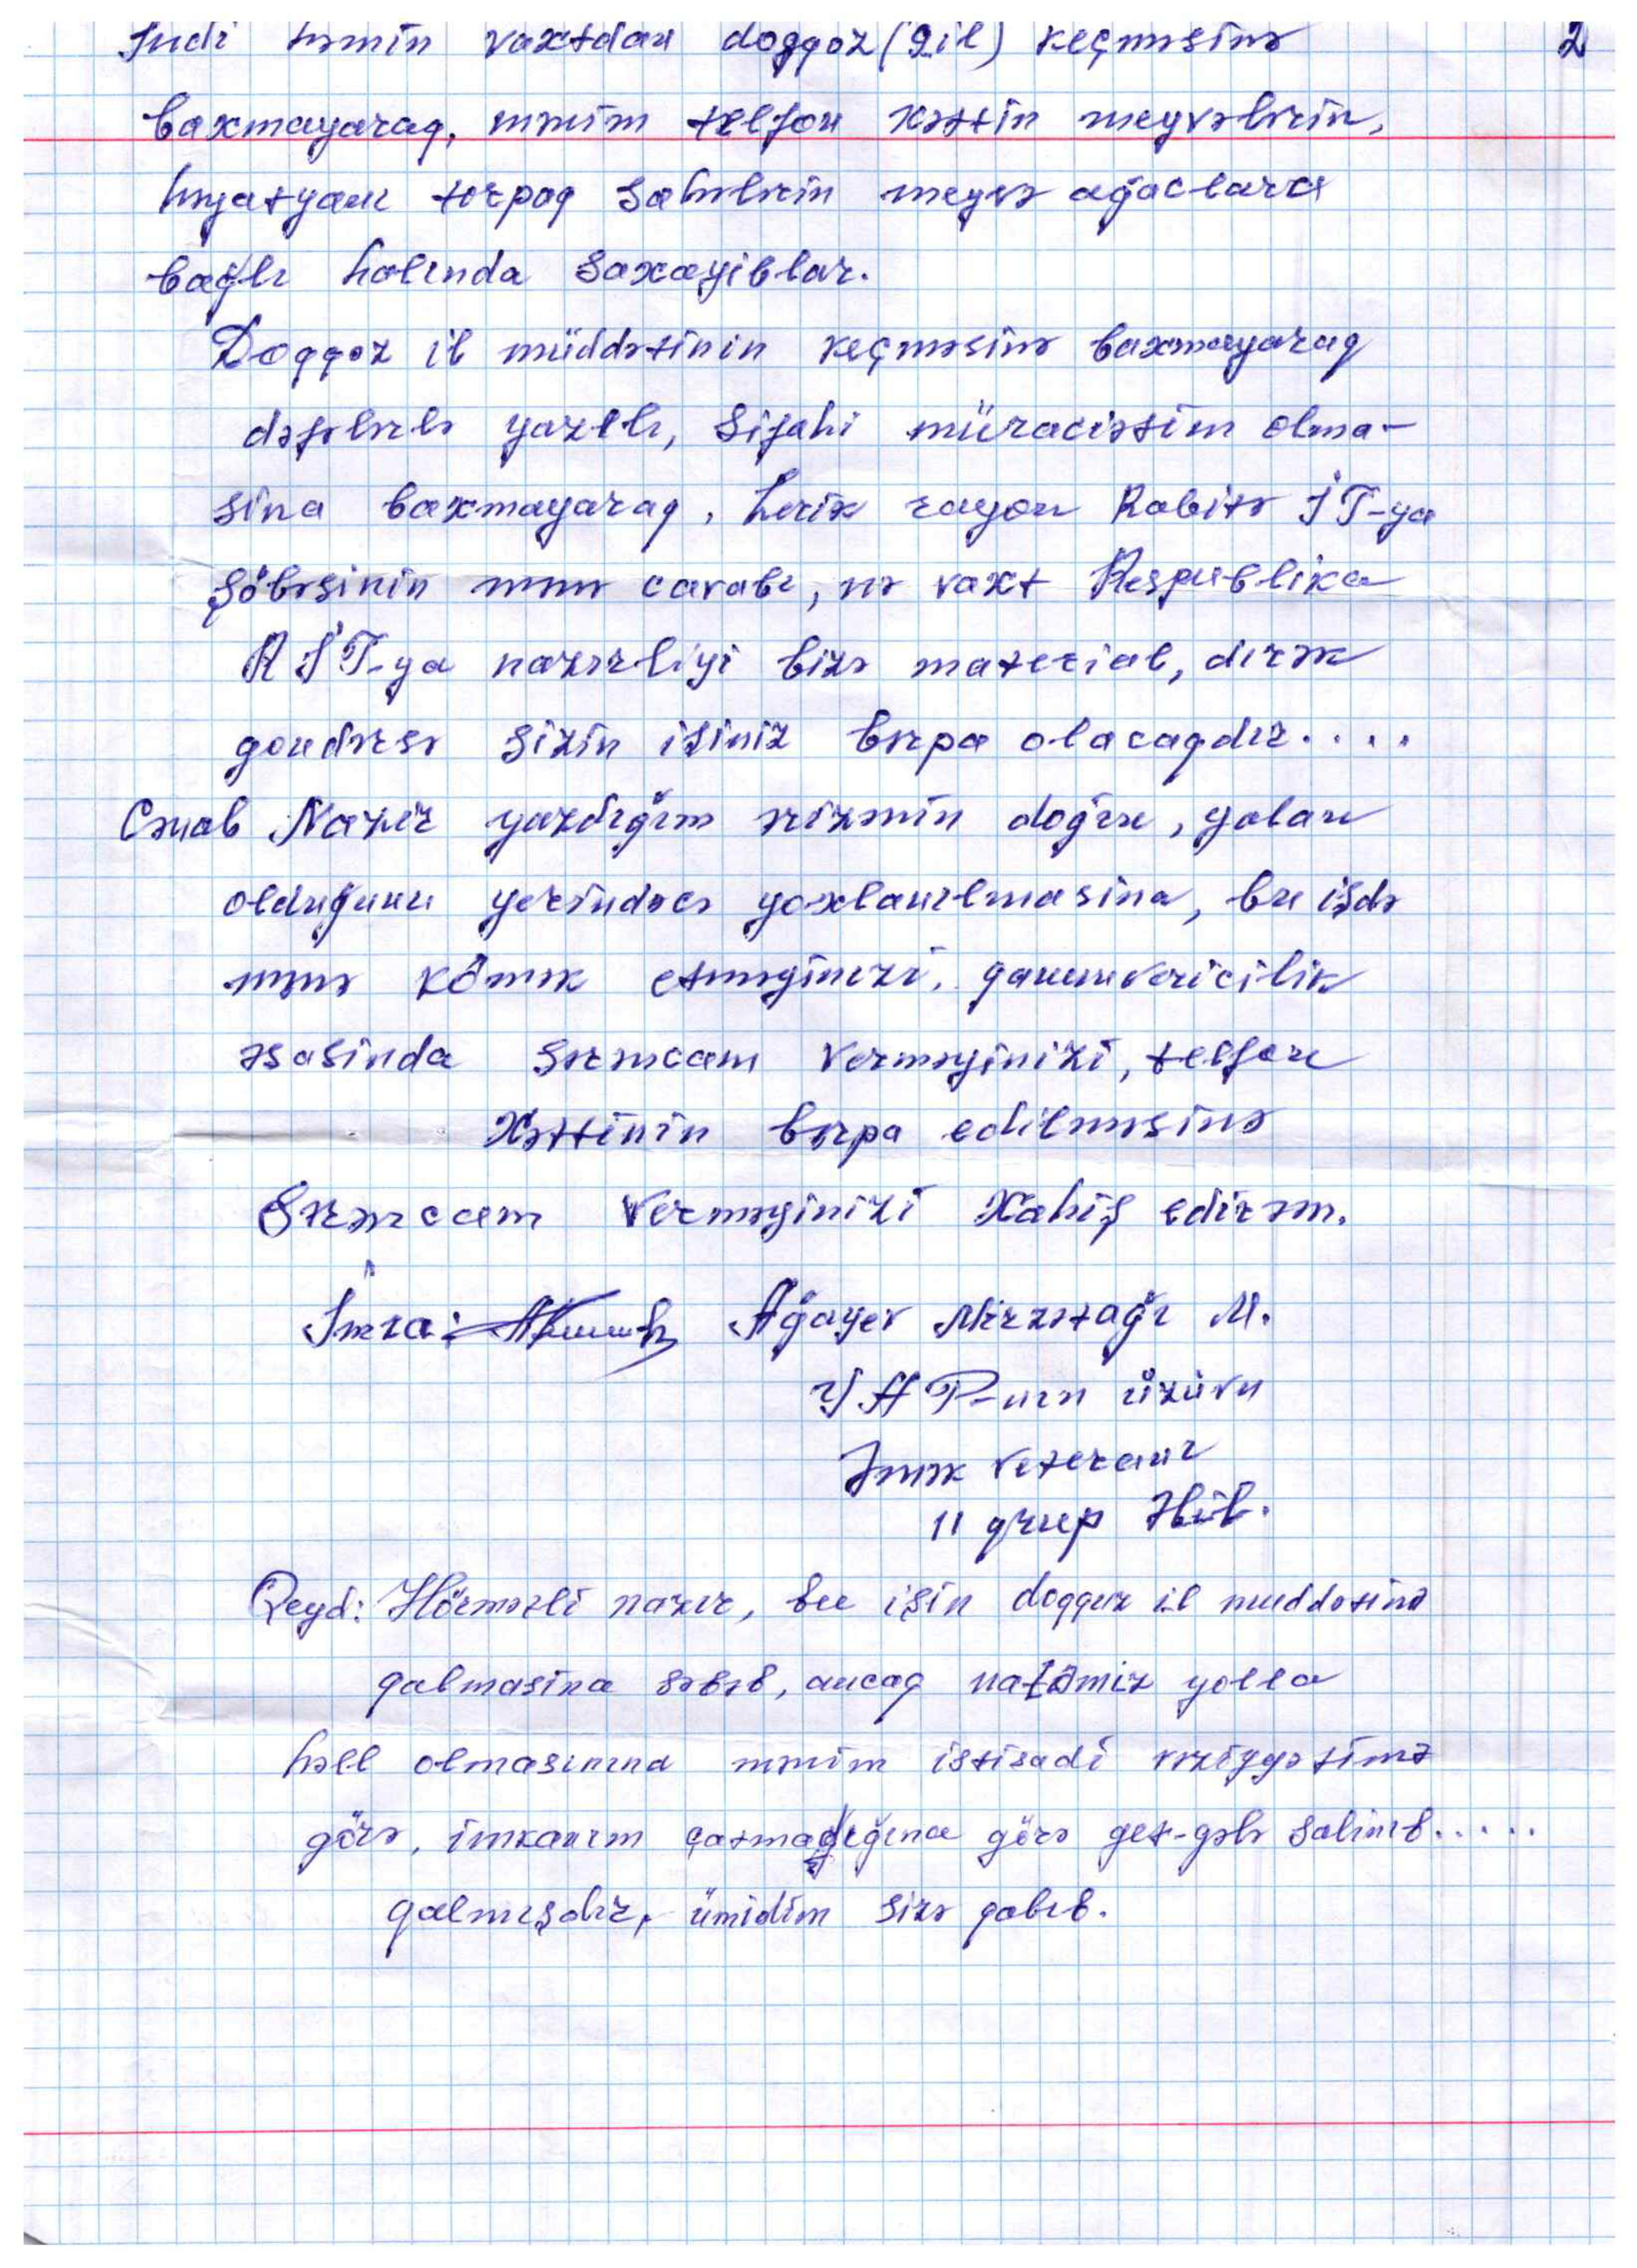 İndi həmin vaxtdan doqqoz (9 il) keçməsinə 2
baxmayaraq, mənim telfon xəttin meyvələrin,
həyatyanı torpaq sahələrin meyvə ağacları
bağlı halında saxayıblar.
Doqqoz il müddətinin keçməsinə baxmayaraq
dəfələrlə yazılı, şifahi müraciətim olma-
sına baxmayaraq, Lerik rayon Rabitə İT-ya
şöbəsinin mənə cavabı, nə vaxt Respublika
RİT-ya nazirliyi bizə material, dirək
göndərsə sizin işiniz bərpa olacaqdır....
Cənab Nazir yazdığım ərizəmin doğru, yalan
olduğunu yerindəcə yoxlanılmasına, bu işdə
mənə kömək etməyinizi, qanunvericilik
əsasında sərəncam verməyinizi, telfon
xəttinin bərpa edilməsinə
Sərəncam verməyinizi xahiş edirəm.
İmza: Ağayev Mirzətağı M.
YAP-nın üzüvü
Əmək veteranı
II qrup Əlil.
Qeyd: Hörmətli nazir, bu işin doqquz il muddətinə
qalmasına səbəb, ancaq natəmiz yolla
həll olmasınına mənim istisadi vəziyyətimə
görə, imkanım çatmadığına görə get-gələ salınıb.....
qalmışdır, ümidim sizə qalıb.